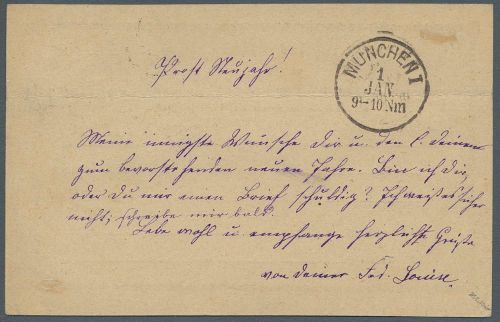 Prost Neujahr!
MÜNCHEN I
1
JAN.
9-10 Nm
Meine innigste Wünsche dir u. den l. deinen
zum bevorstehenden neuen Jahre. Bin ich dir,
oder Du mir einen Brief schuldig? Ich weiß es sicher
nicht, schreibe mir bald.
Lebe wohl u. empfange herzlichste Grüße
von deiner Frd. Louise.